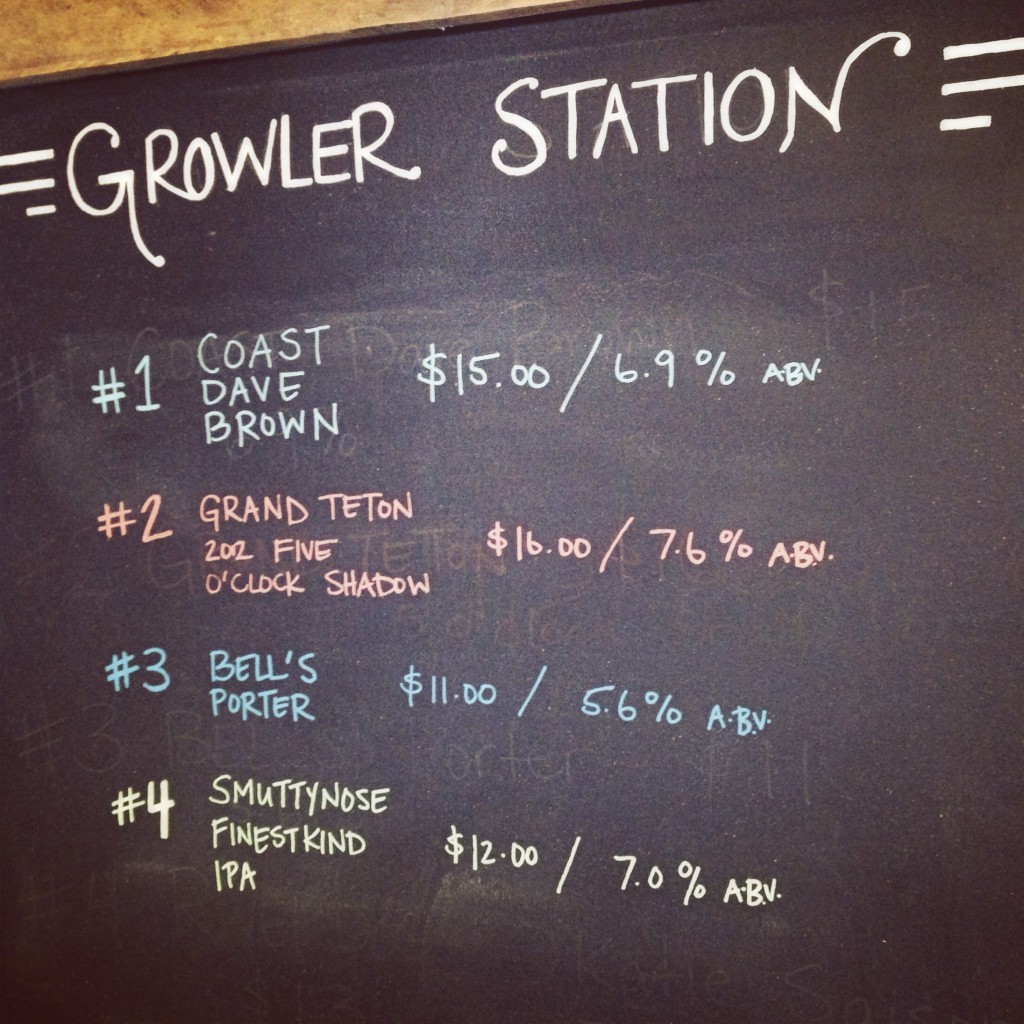 GROWLER STATION
#1 COAST DAVE BROWN $15.00 / 6.9% A.B.V.
#2 GRAND TETON 202 FIVE O'CLOCK SHADOW $16.00 / 7.6% A.B.V.
#3 BELL'S PORTER $11.00 / 5.6% A.B.V.
#4 SMUTTYNOSE FINESTKIND IPA $12.00 / 7.0% A.B.V.